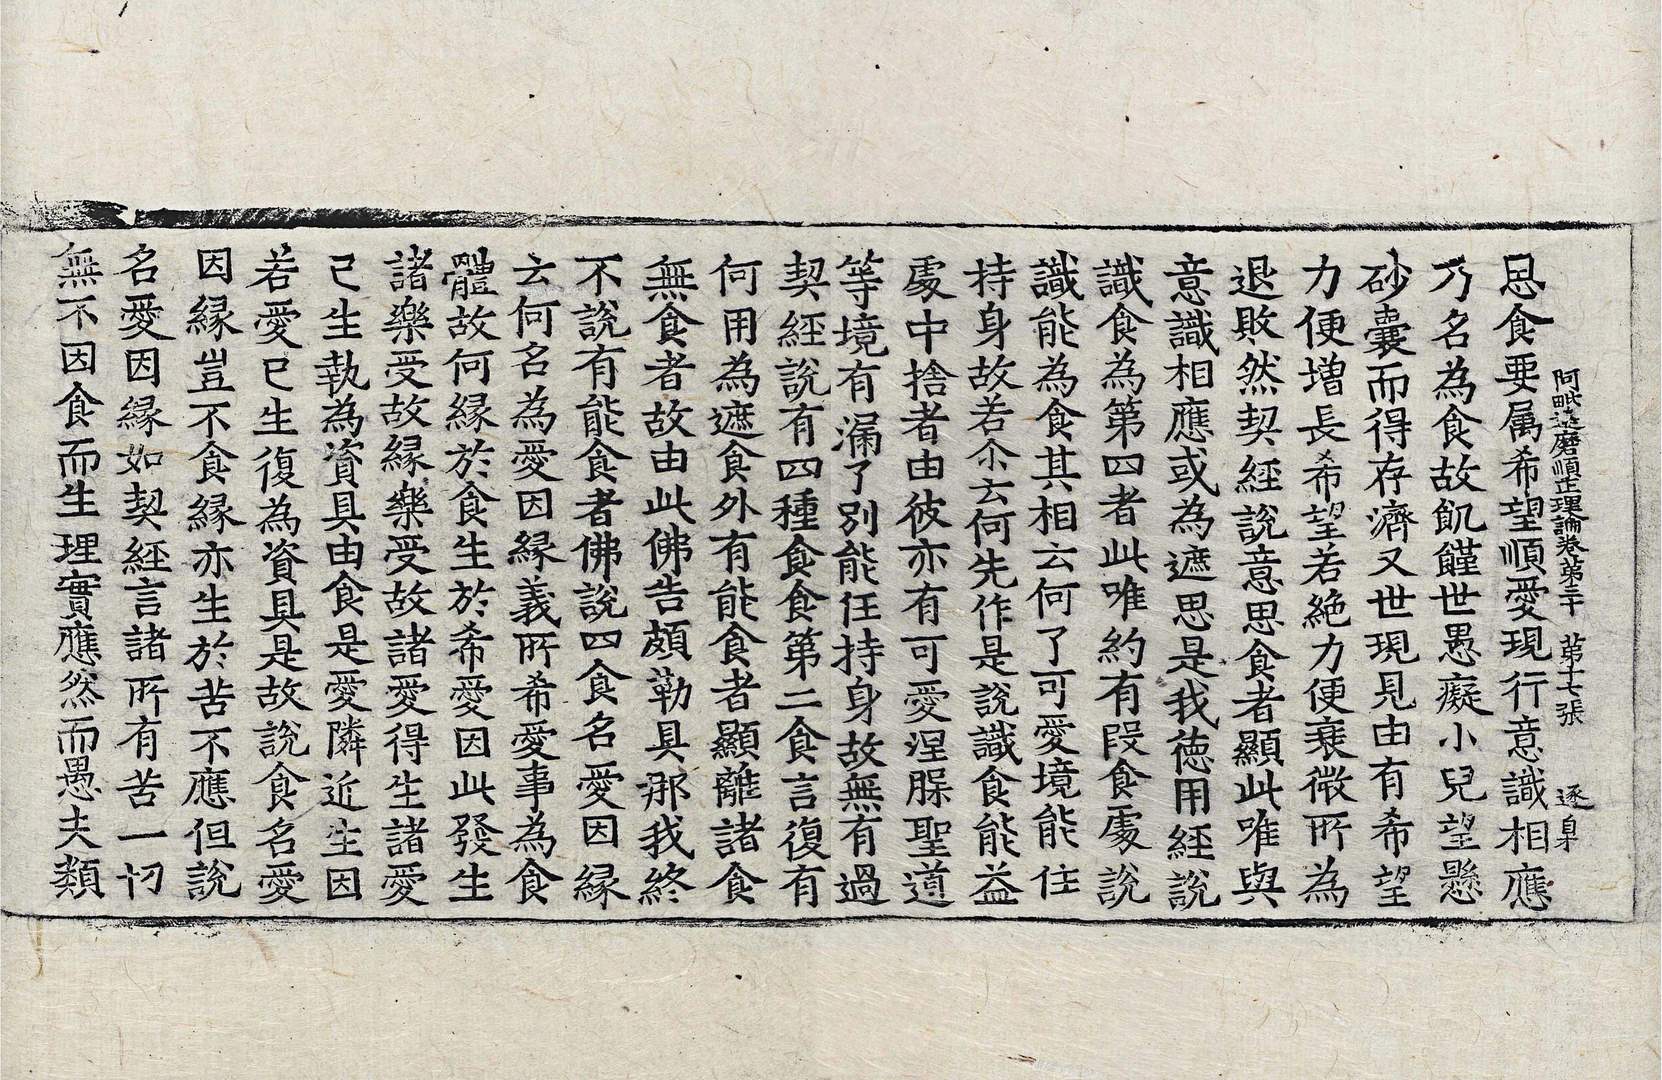 阿毗達磨順正理論卷第三十　第十七張　逐　㮡
思食要属希望順愛現行意識相應
乃名為食故飢饉世愚癡小兒望懸
砂囊而得存濟又世現見由有希望
力便增長希望若絶力便衰微所為
退敗然契經說意思食者顯此唯與
意識相應或為遮思是我德用經說
識食為第四者此唯約有段食處說
識能為食其相云何了可愛境能住
持身故若尒云何先作是說識食能益
處中捨者由彼亦有可愛涅槃聖道
等境有漏了別能任持身故無有過
契經說有四種食食第二食言復有
何用為遮食外有能食者顯離諸食
無食者故由此佛告頗勒具那我終
不說有能食者佛說四食名愛因縁
云何名為愛因縁義所希愛事為食
體故何縁於食生於希愛因此發生
諸樂受故縁樂受故諸愛得生諸愛
已生執為資具由食是愛隣近生因
若愛已生復為資具是故說食名愛
因縁豈不食縁亦生於苦不應但說
名愛因縁如契經言諸所有苦一切
無不因食而生理實應然而愚夫類